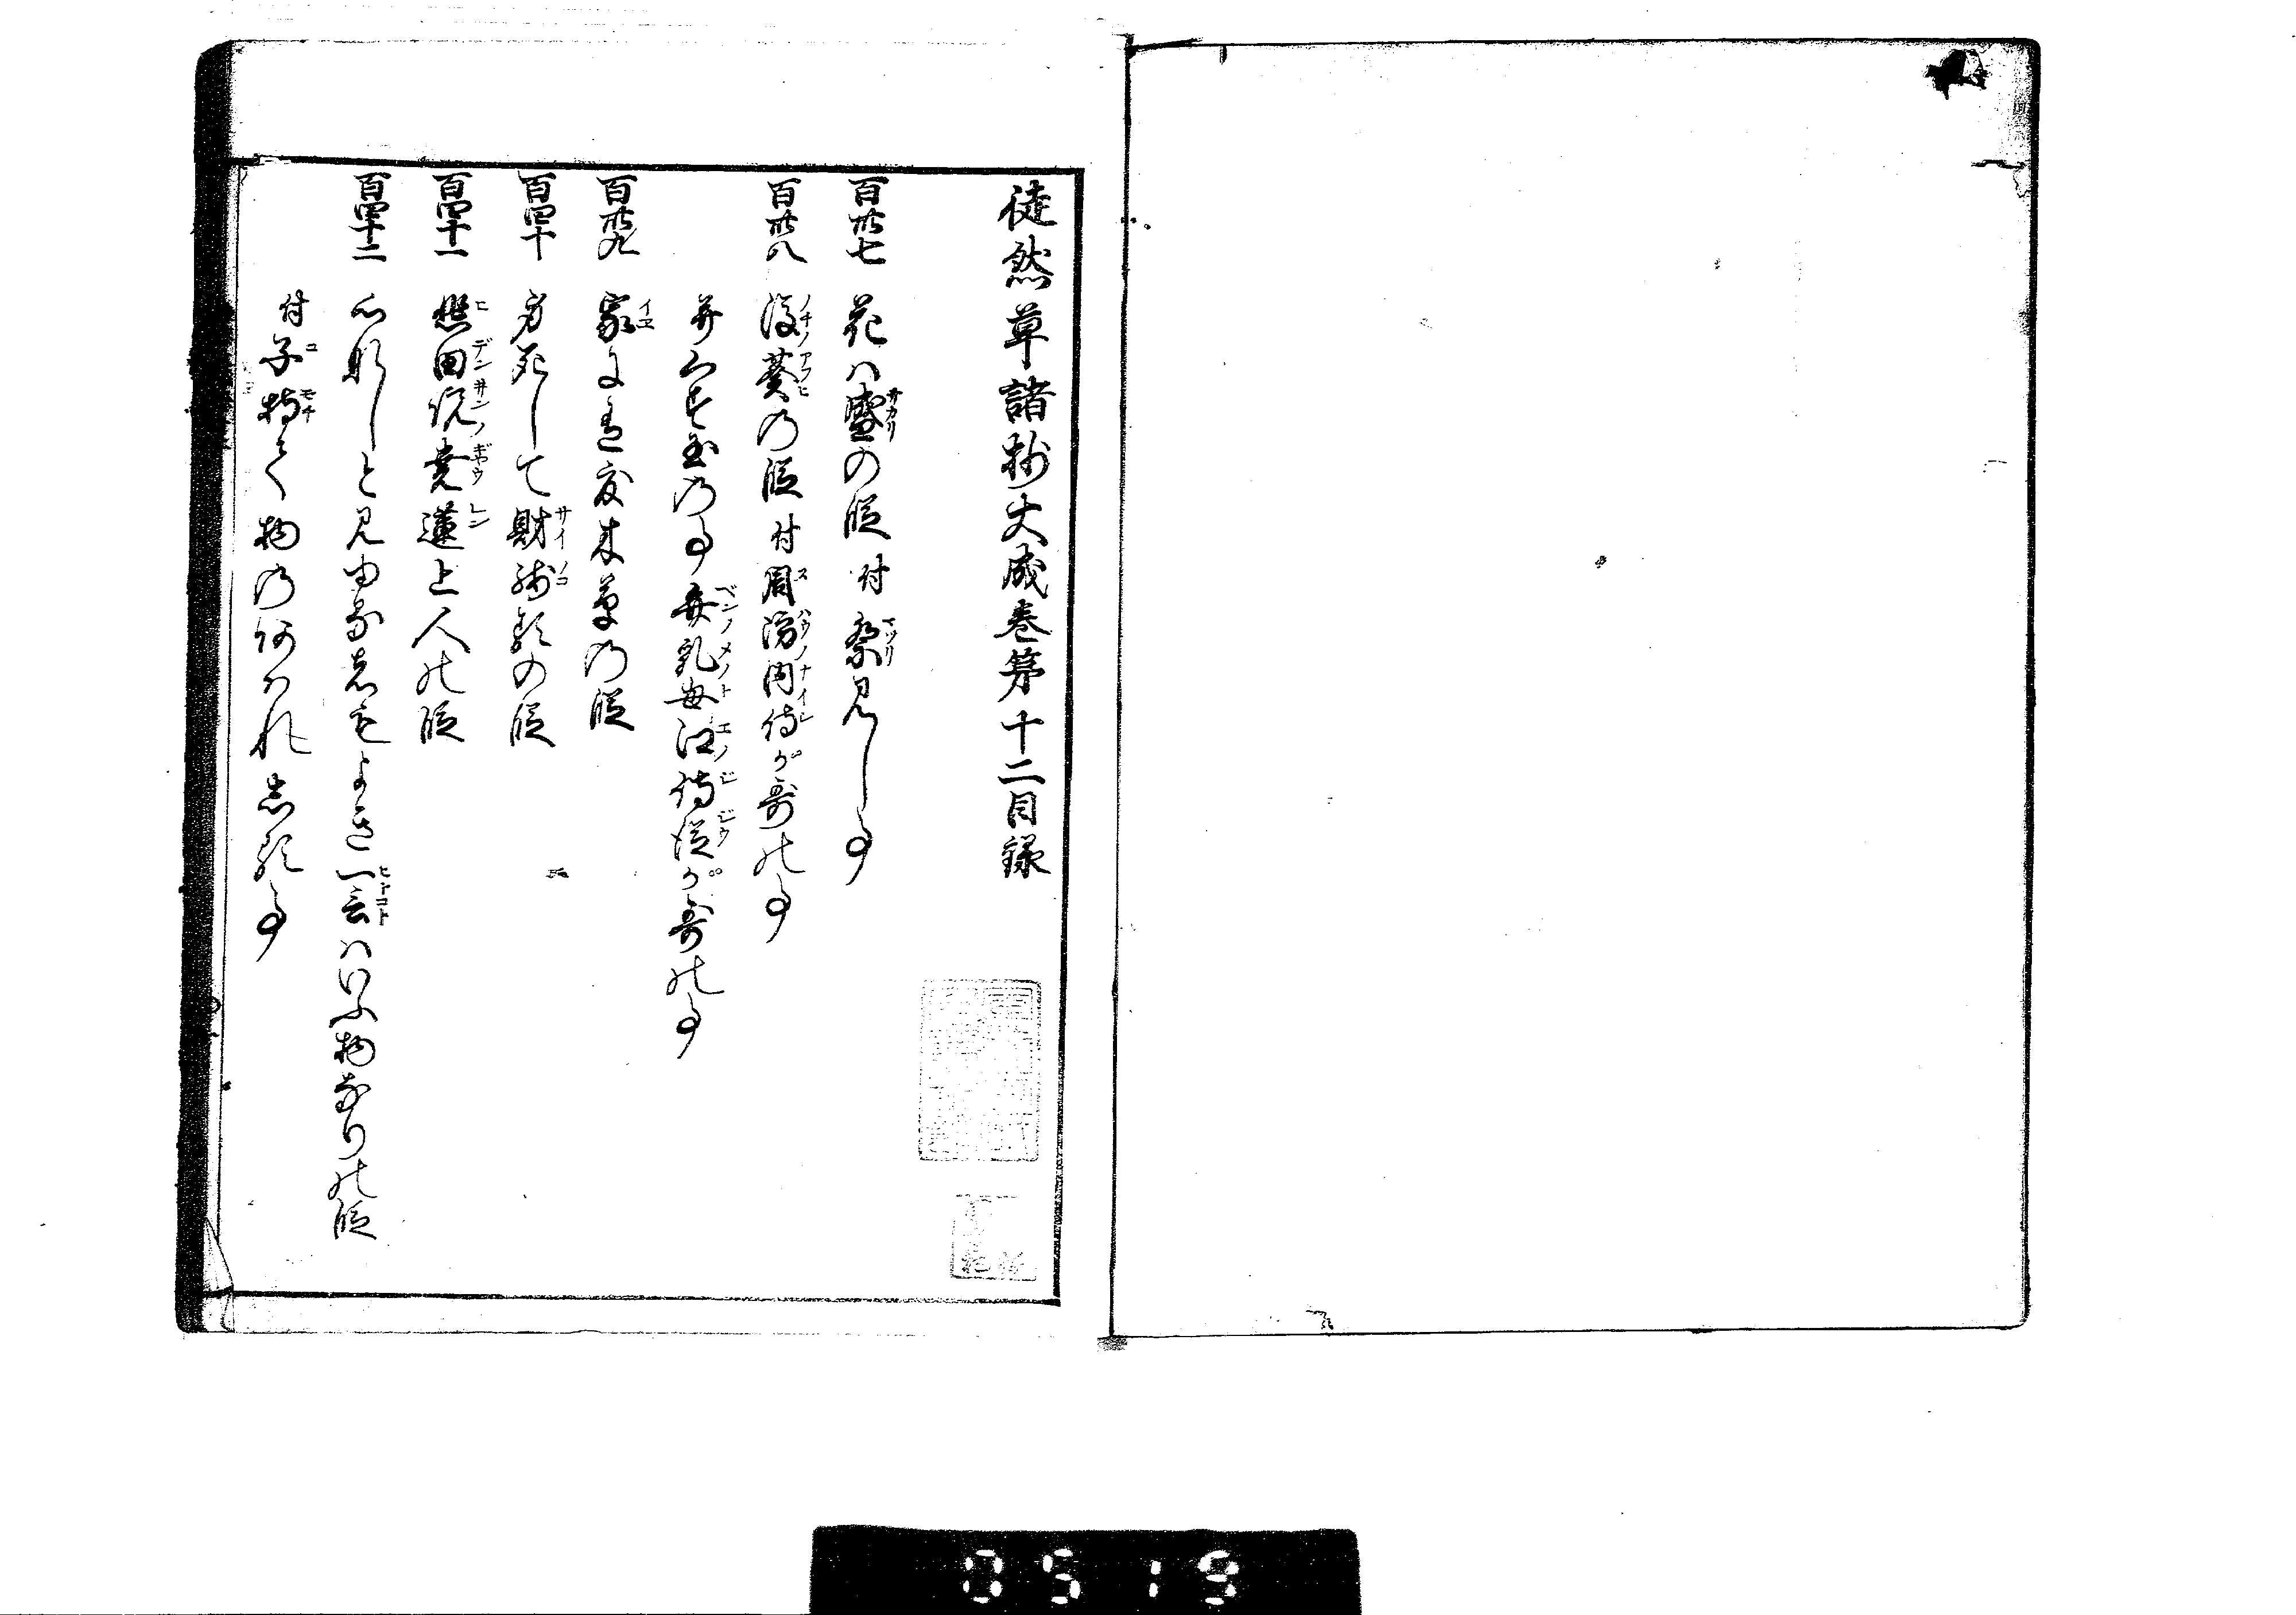 徒然草諸抄大成巻第十二目録
百卅七 花は盛の段 付 祭見し事
百卅八 後葵の段 付 周防内侍が哥の事
并くす玉の事 弁乳母江侍従が哥の事
百卅九 家に有度木草の段
百四十 身死して財残るの段
百四十一 悲田院尭蓮上人の段
百四十二 心なしと見ゆる者もよき一言はいふ物なりの段
付 子持て物のあはれしる事
0519